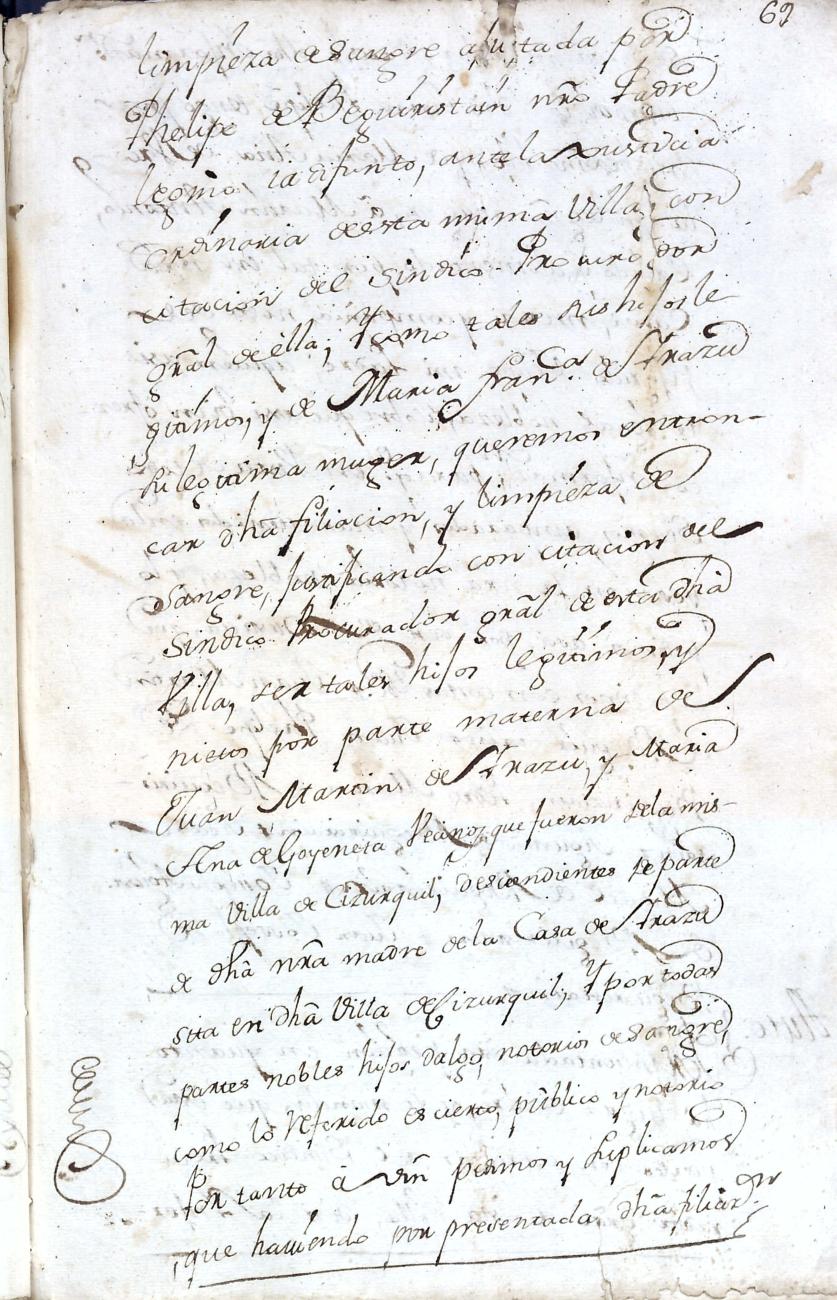 69
limpieza de sangre ajustada por
Phelipe de Beguiristain nr̃o Padre
legmo ia difunto, ante la Justicia
ordinaria de esta misma Villa, con
citacion del Sindico Procurador
gr̃al de ella; Y como tales sus hijos le
gitimos, y de Maria Fran.ca de Strazu
su legitima muger, queremos entron-
car dha filiacion, y limpieza de
Sangre, justificando con citacion del
Sindico Procurador gr̃al de esta dha
Villa, ser tales hijos legitimos, y
nietos por parte materna de
Juan Martin de Strazu, y Maria
Ana de Goyeneta Vecinos que fueron de la mis-
ma Villa de Cizurquil, descendientes de parte
de dhã nr̃a madre de la Casa de Strazu
sita en dhã Villa de Cizurquil; Y por todas
partes nobles hijos dalgo, notorios de sangre,
como lo referido es cierto, publico y notorio
Por tanto à Vm̃ pedimos y suplicamos
que haviendo por presentada dhã filiaz.on